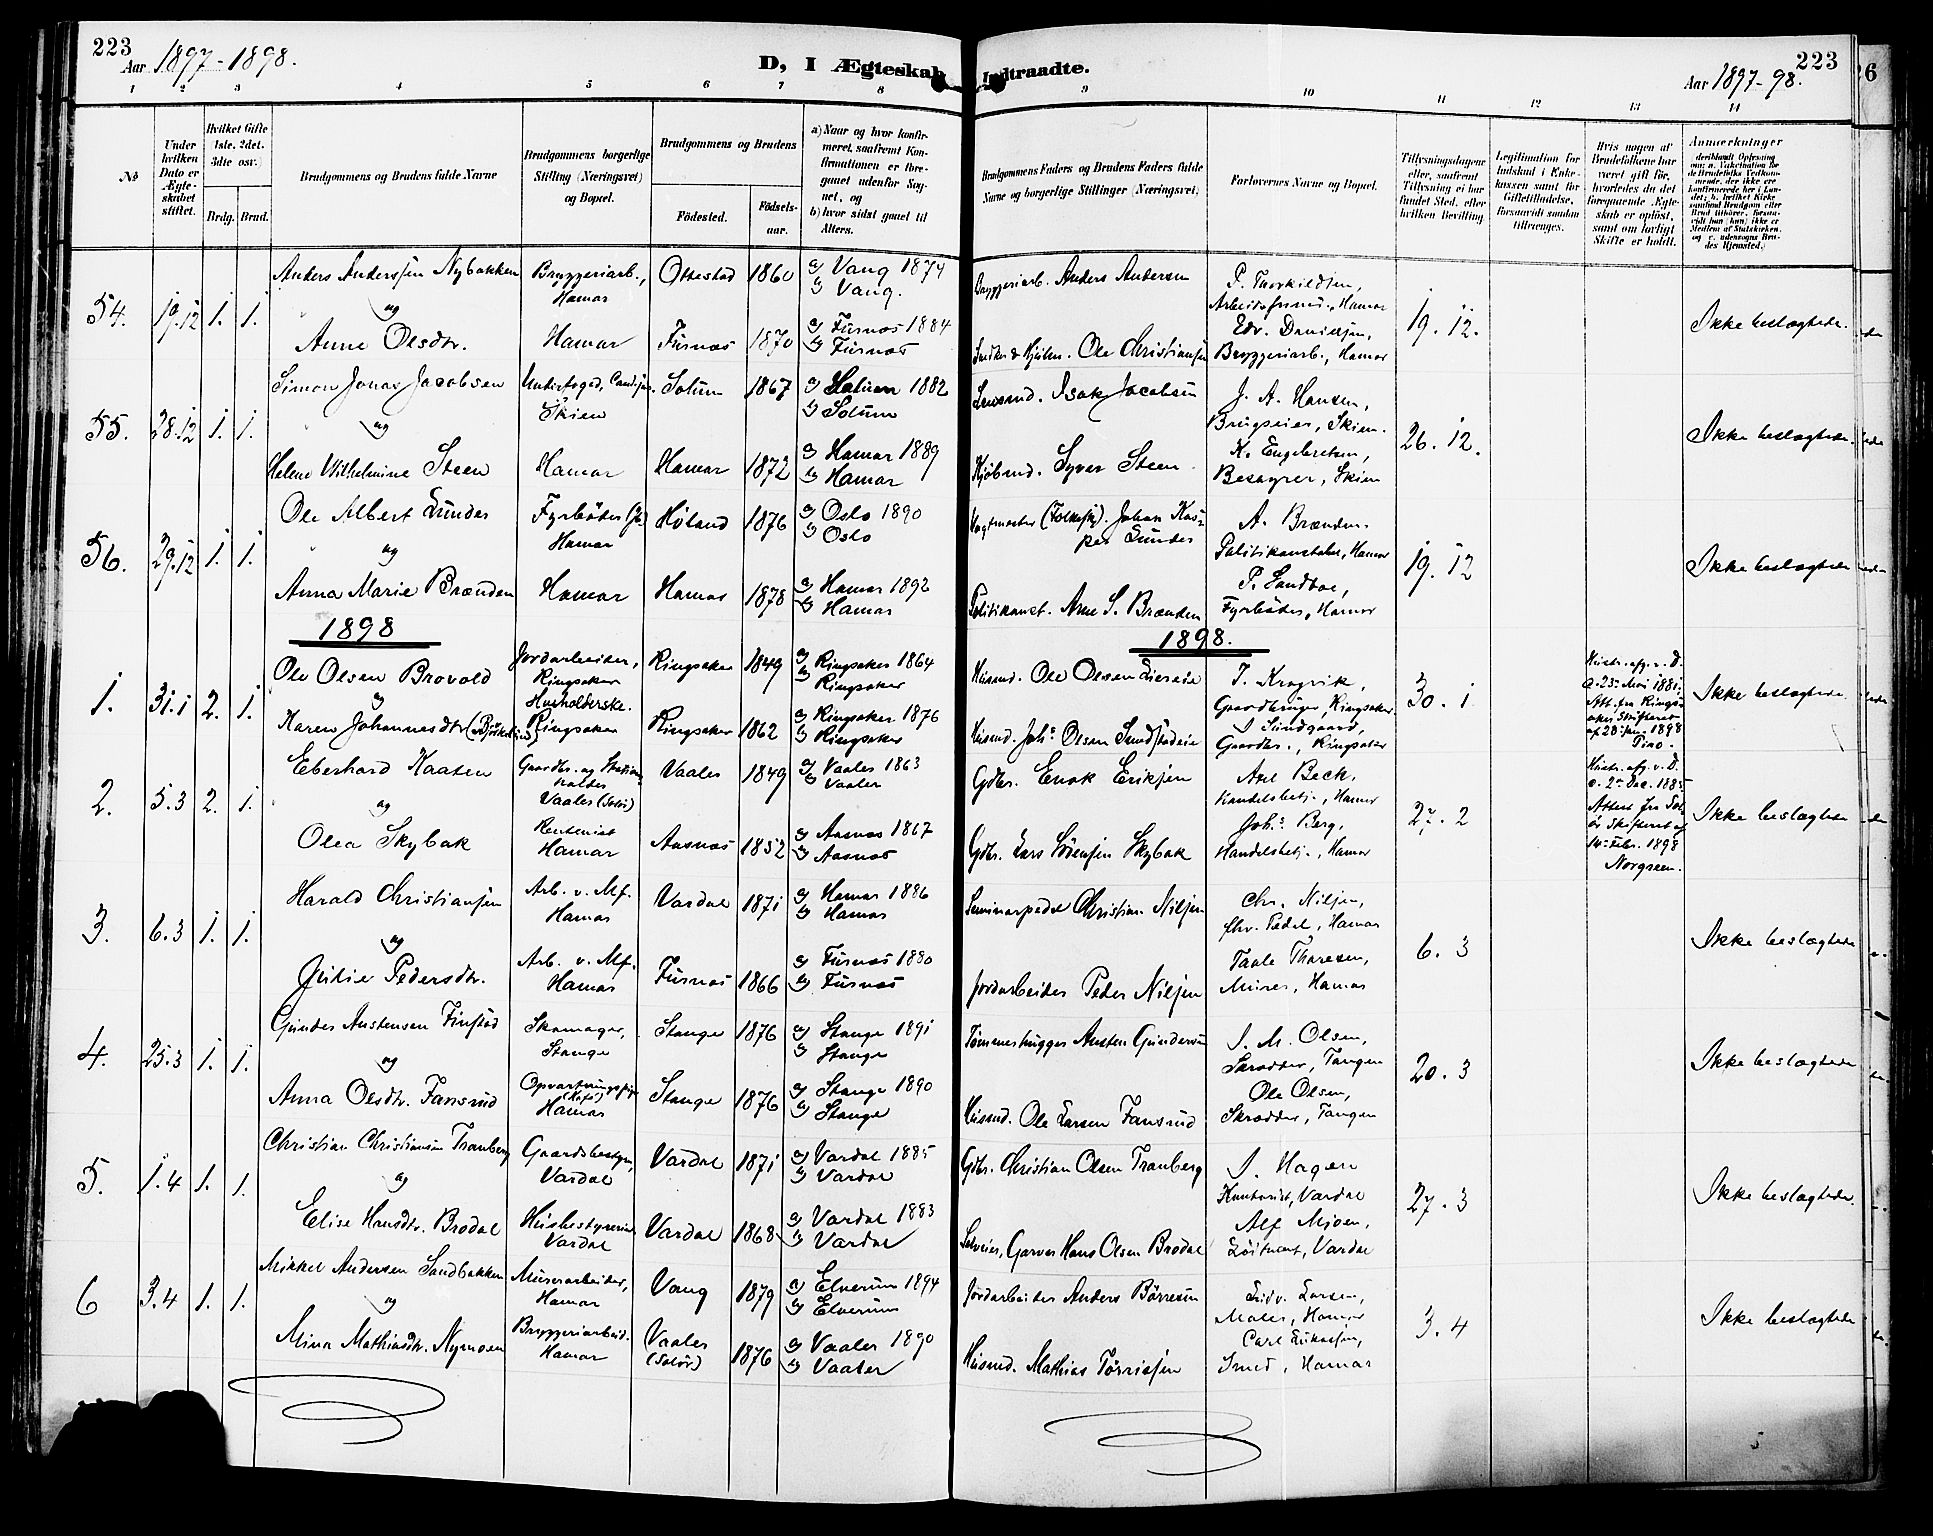 223
Aar 1897-1898.
D, I Ægteskab Indtraadte.
Aar 1897-98.
223
26
1 2 3 4 5 6 7 8 9 10 11 12 13 14
No
Under hvilken Dato er Ægteskabet stiftet.
Hvilket Gifte 1ste. 2det. 3dte osv.
Brdg. Brud.
Brudgommens og Brudens fulde Navne
Brudgommens borgerlige Stilling (Næringsvei) og Bopæl.
Brudgommens og Brudens
Fødested.
Fødselsaar.
a) Naar og hvor konfirmeret, saafremt Konfirmationen er foregaaet udenfor Sognet, og
b) hvor sidst gaaet til Alters.
Brudgommens Faders og Brudens Faders fulde Navne og borgerlige Stillinger (Næringsvei).
Forlovernes Navne og Bopæl.
Tillysningsdagene eller, saafremt Tillysning ei har fundet Sted, efter hvilken Bevilling
Legitimation for Indskud i Enkekassen samt for Giftetilladelse, forsaavidt saadan tiltrænges.
Hvis nogen af Brudefolkene har været gift før, hvorledes da det foregaaende Ægteskab er opløst, samt om lovligt Skifte er holdt.
Anmerkninger
54. 19/12 1. 1.
Anders Anderssen Nybakken
og
Anne Olsdtr.
Bryggeriarb., Hamar
Hamar
Ottestad 1860
Furnæs 1870
a) Vang 1874
b) Vang.
a) Furnæs 1884
b) Furnæs
Bryggeriarb. Anders Andersen
Ole Christiansen
P. Thorkildsen,
Arbeidsformd., Hamar
Edv. Davidsen,
Bryggeriarb., Hamar
19. 12.
Ikke beslægtede.
55. 28.12 1. 1.
Simon Jonas Jacobsen
og
Helene Wilhelmine Steen
Skien
Hamar
Solum 1867
Hamar 1872
a) Solum 1882
b) Solum
a) Hamar 1889
b) Hamar
Isak Jacobsen
Kjøbmd. Syver Steen
J. A. Hansen,
Brugseier, Skien.
K. Engebretsen,
Besøgrer, Skien
26. 12.
Ikke beslægtede.
56. 29.12 1. 1.
Ole Albert Lunder
og
Anna Marie Brænden
Fyrbøder
Hamar
Hamar
Høland 1876
Hamar 1878
a) Oslo 1890
b) Oslo
a) Hamar 1892
b) Hamar
Vagtmester Johan Kasper Lunder
Politikonst. Arne S. Brænden
A. Brænden
Politikonstabel, Hamar
P. Sandboe,
Fyrbøder, Hamar
19. 12
Ikke beslægtede
1898
1898.
1. 31.1 2. 1.
Ole Olsen Brovold
og
Karen Johannesdtr.
Jordarbeider,
Ringsaker
Husholderske.
Ringsaker
Ringsaker 1849
Ringsaker 1862
a) Ringsaker 1864
b) Ringsaker
a) Ringsaker 1876
b) Ringsaker
Husmd. Ole Olsen
Husmd. Johs. Olsen
J. Krogvik,
Gaardbruger, Ringsaker.
Gaardbr., Ringsaker
30. 1
Hustr. afg. v. D.
d. 23de Mai 1881.
Att. fra Ringsaker Skifteret
af 28 Jan. 1898
Ikke beslægtede.
2. 5.3 2. 1.
Eberhard Kaaten
og
Olea Skybak
Gaardbr. og
Vaaler (Solør)
Rentenist
Hamar
Vaaler 1849
Aasnæs 1852
a) Vaaler 1863
b) Vaaler
a) Aasnæs 1867
b) Aasnæs
Gdbr. Enok Eriksen
Gdbr. Lars Sørensen Skybak
Axel Beck,
Handelsbetj., Hamar
Johs. Berg,
Handelsbetj., Hamar
27. 2
Hustr. afg. v. D.
d. 2den Dec. 1885
Attest fra Solør Skifteret af
14de Febr. 1898
Norgreen.
Ikke beslægtede
3. 6.3 1. 1.
Harald Christiansen
og
Julie Pedersdtr.
Arb. v. Mf.
Hamar
Arb. v. Mf.
Hamar
Vardal 1871
Furnæs 1866
a) Hamar 1886
b) Hamar
a) Furnæs 1880
b) Furnæs
Seminarpedel Christian Nilsen
Jordarbeider Peder Nilsen
Chr. Nilsen,
fhv. Pedel, Hamar
Taale Thoresen,
Murer, Hamar
6. 3
Ikke beslægtede
4. 25.3 1. 1.
Gunder Austensen Finstad
og
Anna Olsdtr. Fansrud
Skomager,
Stange
Hamar
Stange 1876
Stange 1876
a) Stange 1891
b) Stange
a) Stange 1890
b) Stange
Tømmerhugger Austen Gundersen
Husmd. Ole Larsen Fansrud
J. M. Olsen,
Skrædder, Tangen
Ole Olsen,
Skrædder, Tangen
20. 3
Ikke beslægtede
5. 1.4 1. 1.
Christian Christiansen Tranberg
og
Elise Hansdtr. Brodal
Gaardsbestyrer,
Vardal
Husbestyrerinde
Vardal
Vardal 1871
Vardal 1868
a) Vardal 1885
b) Vardal
a) Vardal 1883
b) Vardal
Gdbr. Christian Olsen Tranberg
Selveier, Garver Hans Olsen Brodal
J. Hagen
Kontorist, Vardal
Alf Mjøen,
Løitnant, Vardal
27. 3
Ikke beslægtede.
6 3.4 1. 1.
Mikkel Andersen Sandbakken
og
Mina Mathiasdtr. Nymoen
Murerarbeider,
Hamar
Bryggeriarbeid.
Hamar
Vang 1879
Vaaler (Solør) 1876
a) Elverum 1894
b) Elverum
a) Vaaler 1890
b) Vaaler
Jordarbeider Anders Børresen
Husmd. Mathias Tørrissen
Ludv. Larsen,
Maler, Hamar
Carl Lukassen,
Smed, Hamar
3. 4
Ikke beslægtede
5